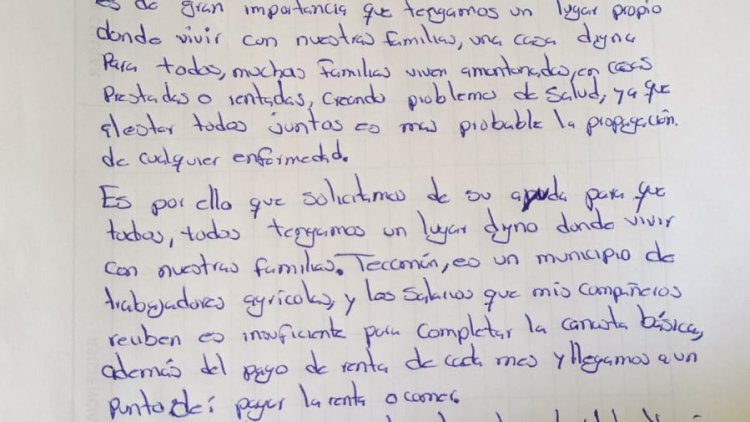 es de gran importancia que tengamos un lugar propio
donde vivir con nuestras familias, una casa digna
Para todos, muchas familias viven amontonadas, en casas
Prestadas o rentadas, creando problemas de salud, ya que
al estar todos juntos es mas probable la propagación
de cualquier enfermedad.
Es por ello que solicitamos de su ayuda para que
todas, todos tengamos un lugar digno donde vivir
con nuestras familias. Tecomán, es un municipio de
trabajadores agrícolas, y los Salarios que mis compañeros
reciben es insuficiente para completar la canasta básica,
además del pago de renta de cada mes y llegamos a un
punto de: pagar la renta o comer.